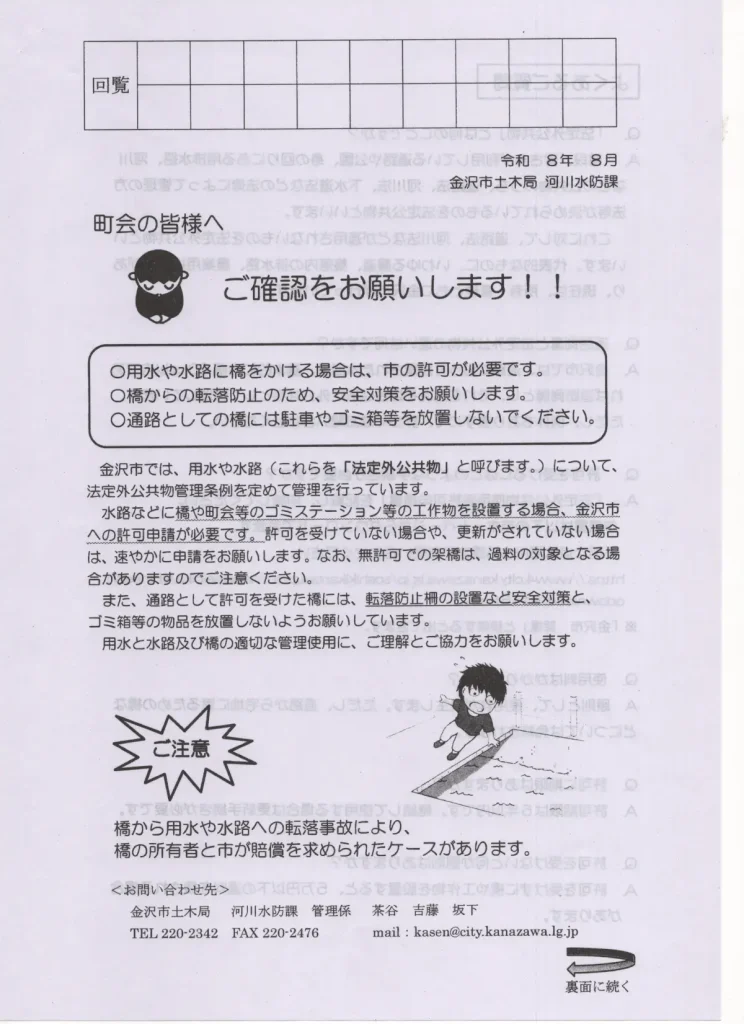 回覧
令和 8年 8月
金沢市土木局 河川水防課
町会の皆様へ
ご確認をお願いします！！
○用水や水路に橋をかける場合は、市の許可が必要です。
○橋からの転落防止のため、安全対策をお願いします。
○通路としての橋には駐車やゴミ箱等を放置しないでください。
金沢市では、用水や水路（これらを「法定外公共物」と呼びます。）について、
法定外公共物管理条例を定めて管理を行っています。
水路などに橋や町会等のゴミステーション等の工作物を設置する場合、金沢市
への許可申請が必要です。許可を受けていない場合や、更新がされていない場合
は、速やかに申請をお願いします。なお、無許可での架橋は、過料の対象となる場
合がありますのでご注意ください。
また、通路として許可を受けた橋には、転落防止柵の設置など安全対策と、
ゴミ箱等の物品を放置しないようお願いしています。
用水と水路及び橋の適切な管理使用に、ご理解とご協力をお願いします。
ご注意
橋から用水や水路への転落事故により、
橋の所有者と市が賠償を求められたケースがあります。
＜お問い合わせ先＞
金沢市土木局 河川水防課 管理係 茶谷 吉藤 坂下
TEL 220-2342 FAX 220-2476 mail : kasen@city.kanazawa.lg.jp
裏面に続く